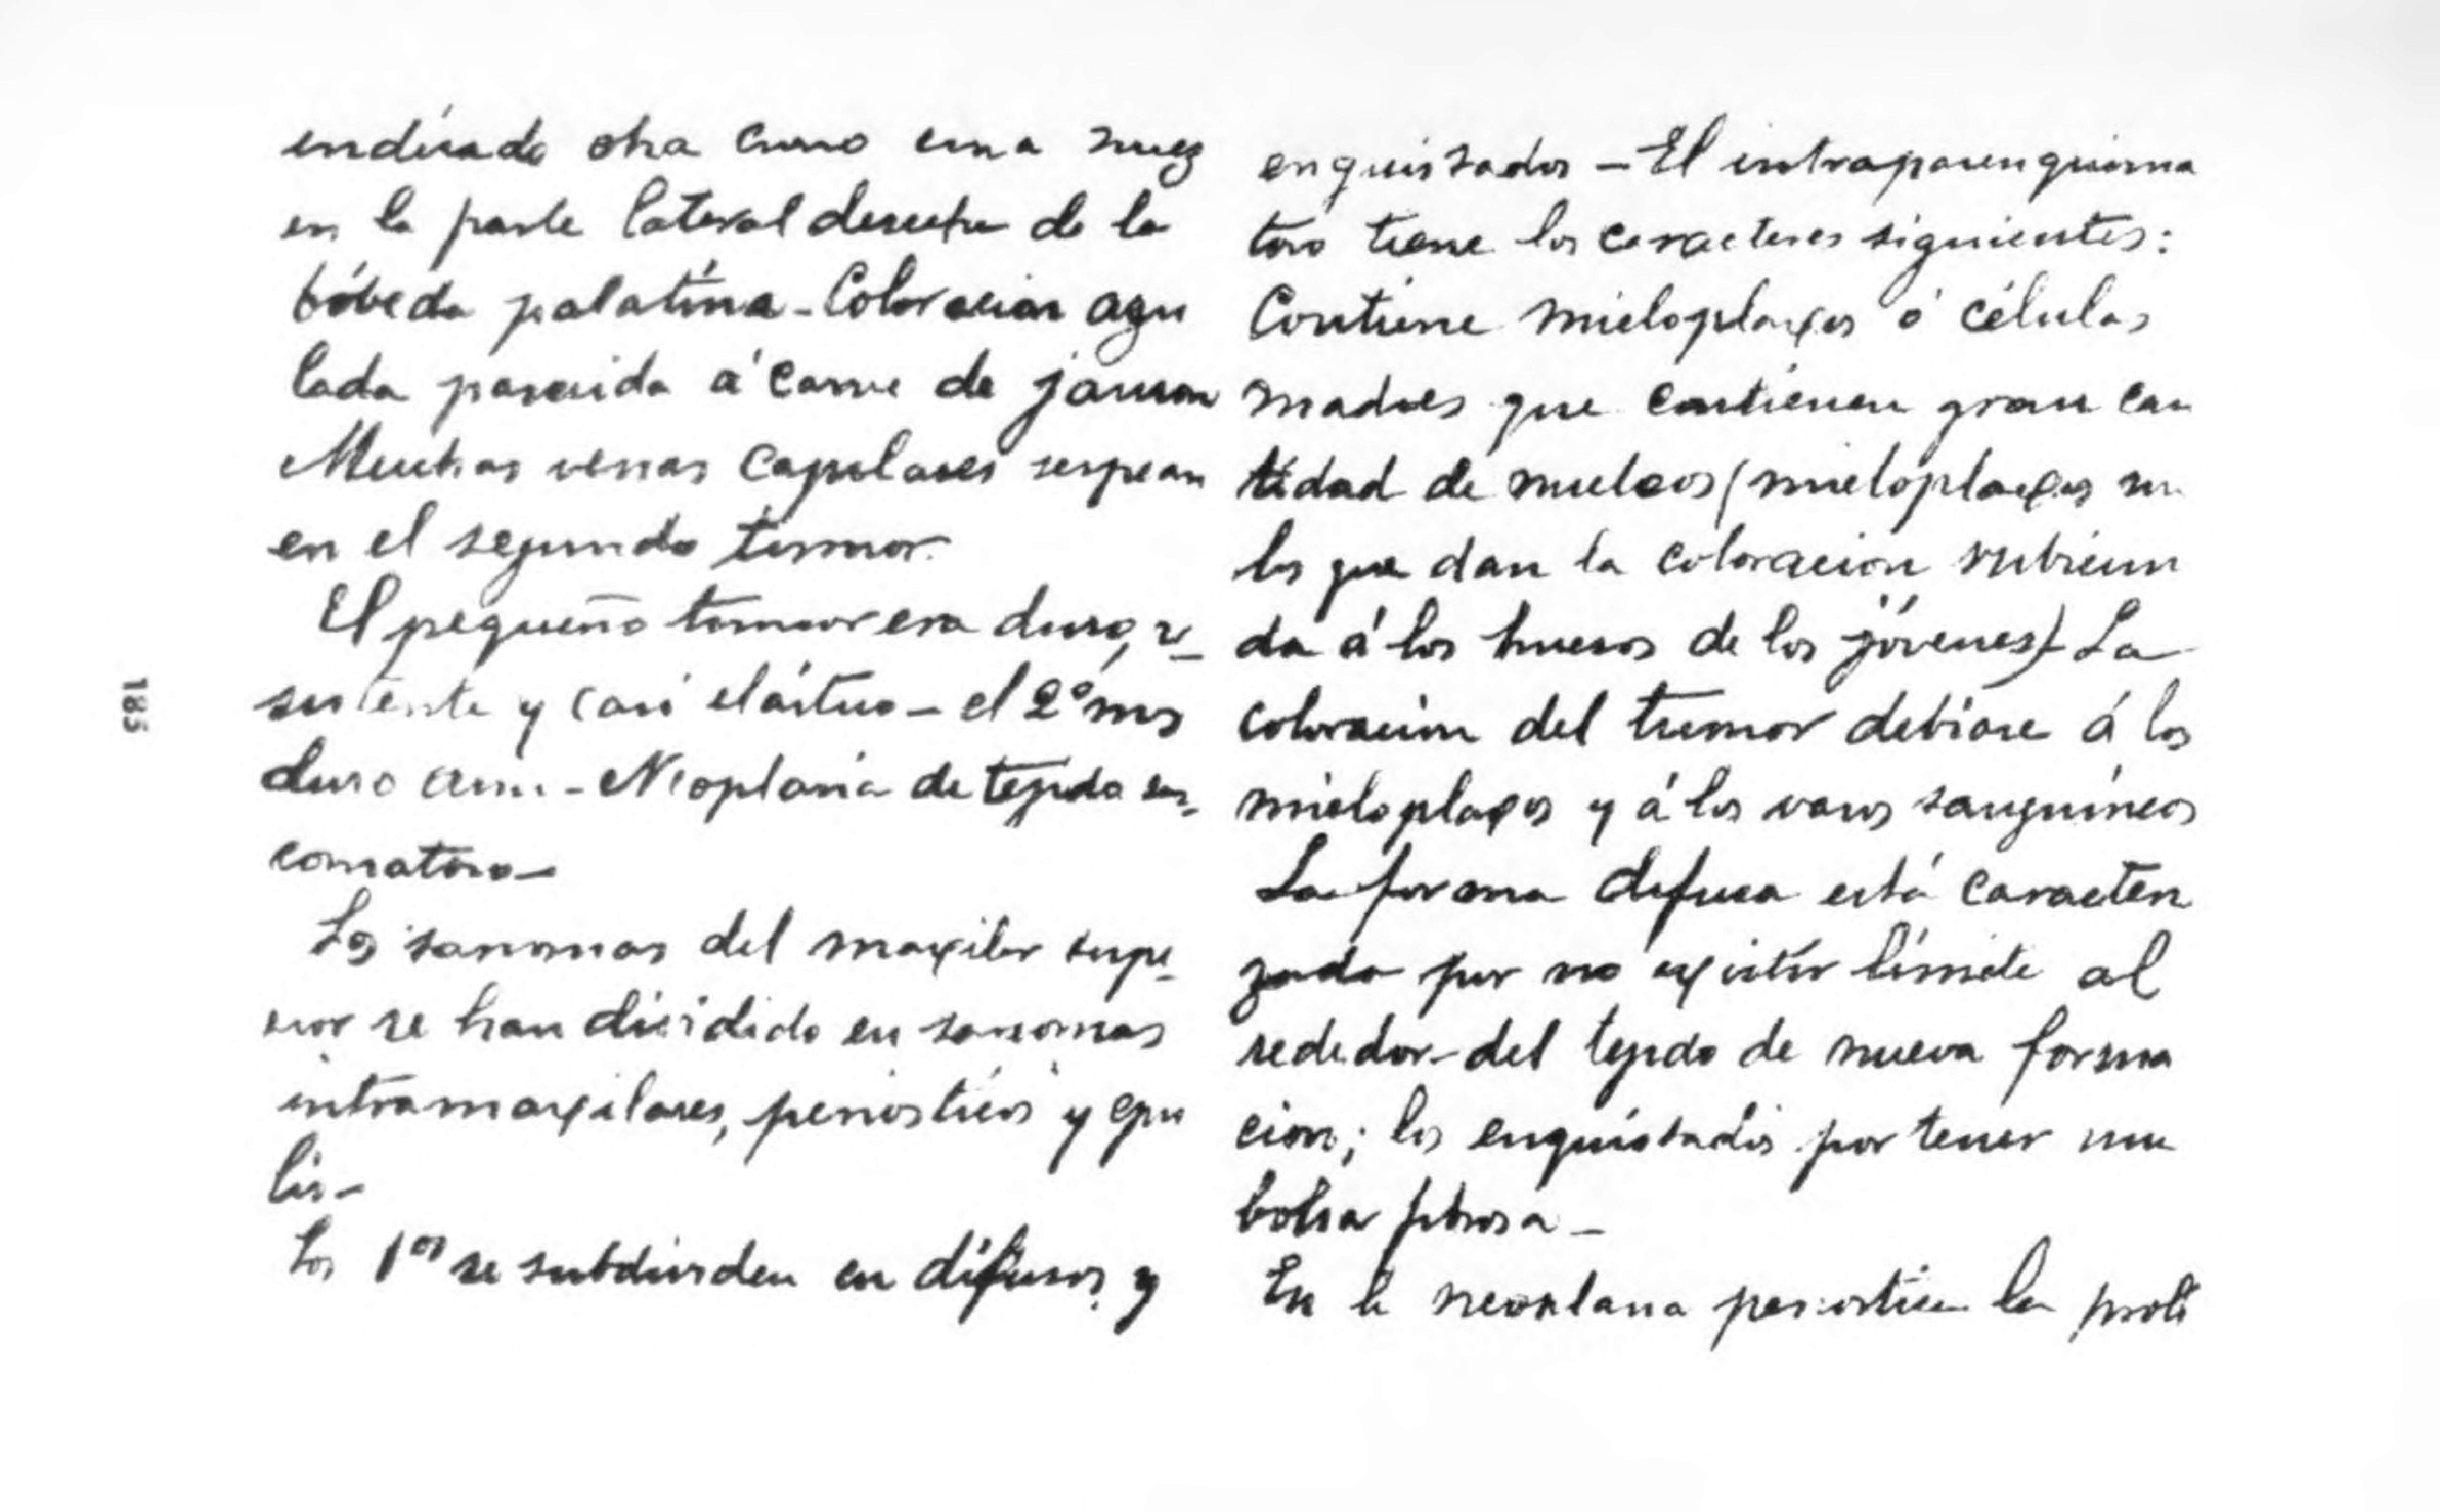 185
endurado otra como una nuez
en la parte lateral derecha de la
bóbeda palatina - Coloracion azu
lada parecida á carne de jamon
Muchas venas capilares serpean
en el segundo tumor.
El pequeño tumor era duro, re_
sistente y casi elástico - el 2º mas
duro aun - Neoplasia de tejido sar_
comatoso -
Los sarcomas del maxilar supe_
rior se han dividido en sarcomas
intramaxilares, periosticos y epu
lis -
Los 1os se subdividen en difusos y
enquistados - El intraparenquima
toso tiene los caracteres siguientes:
Contiene mieloplaxos ó células
madres que contienen gran can
tidad de nucleos (mieloplaxos son
los que dan la coloracion rubicun
da á los huesos de los jóvenes) - La
coloracion del tumor debiase á los
mieloplaxos y á los vasos sanguíneos
La forma difusa está caracteri
zada por no existir límite al
rededor del tejido de nueva forma
cion; los enquistados por tener una
bolsa fibrosa -
En la neoplasia periostica la proli